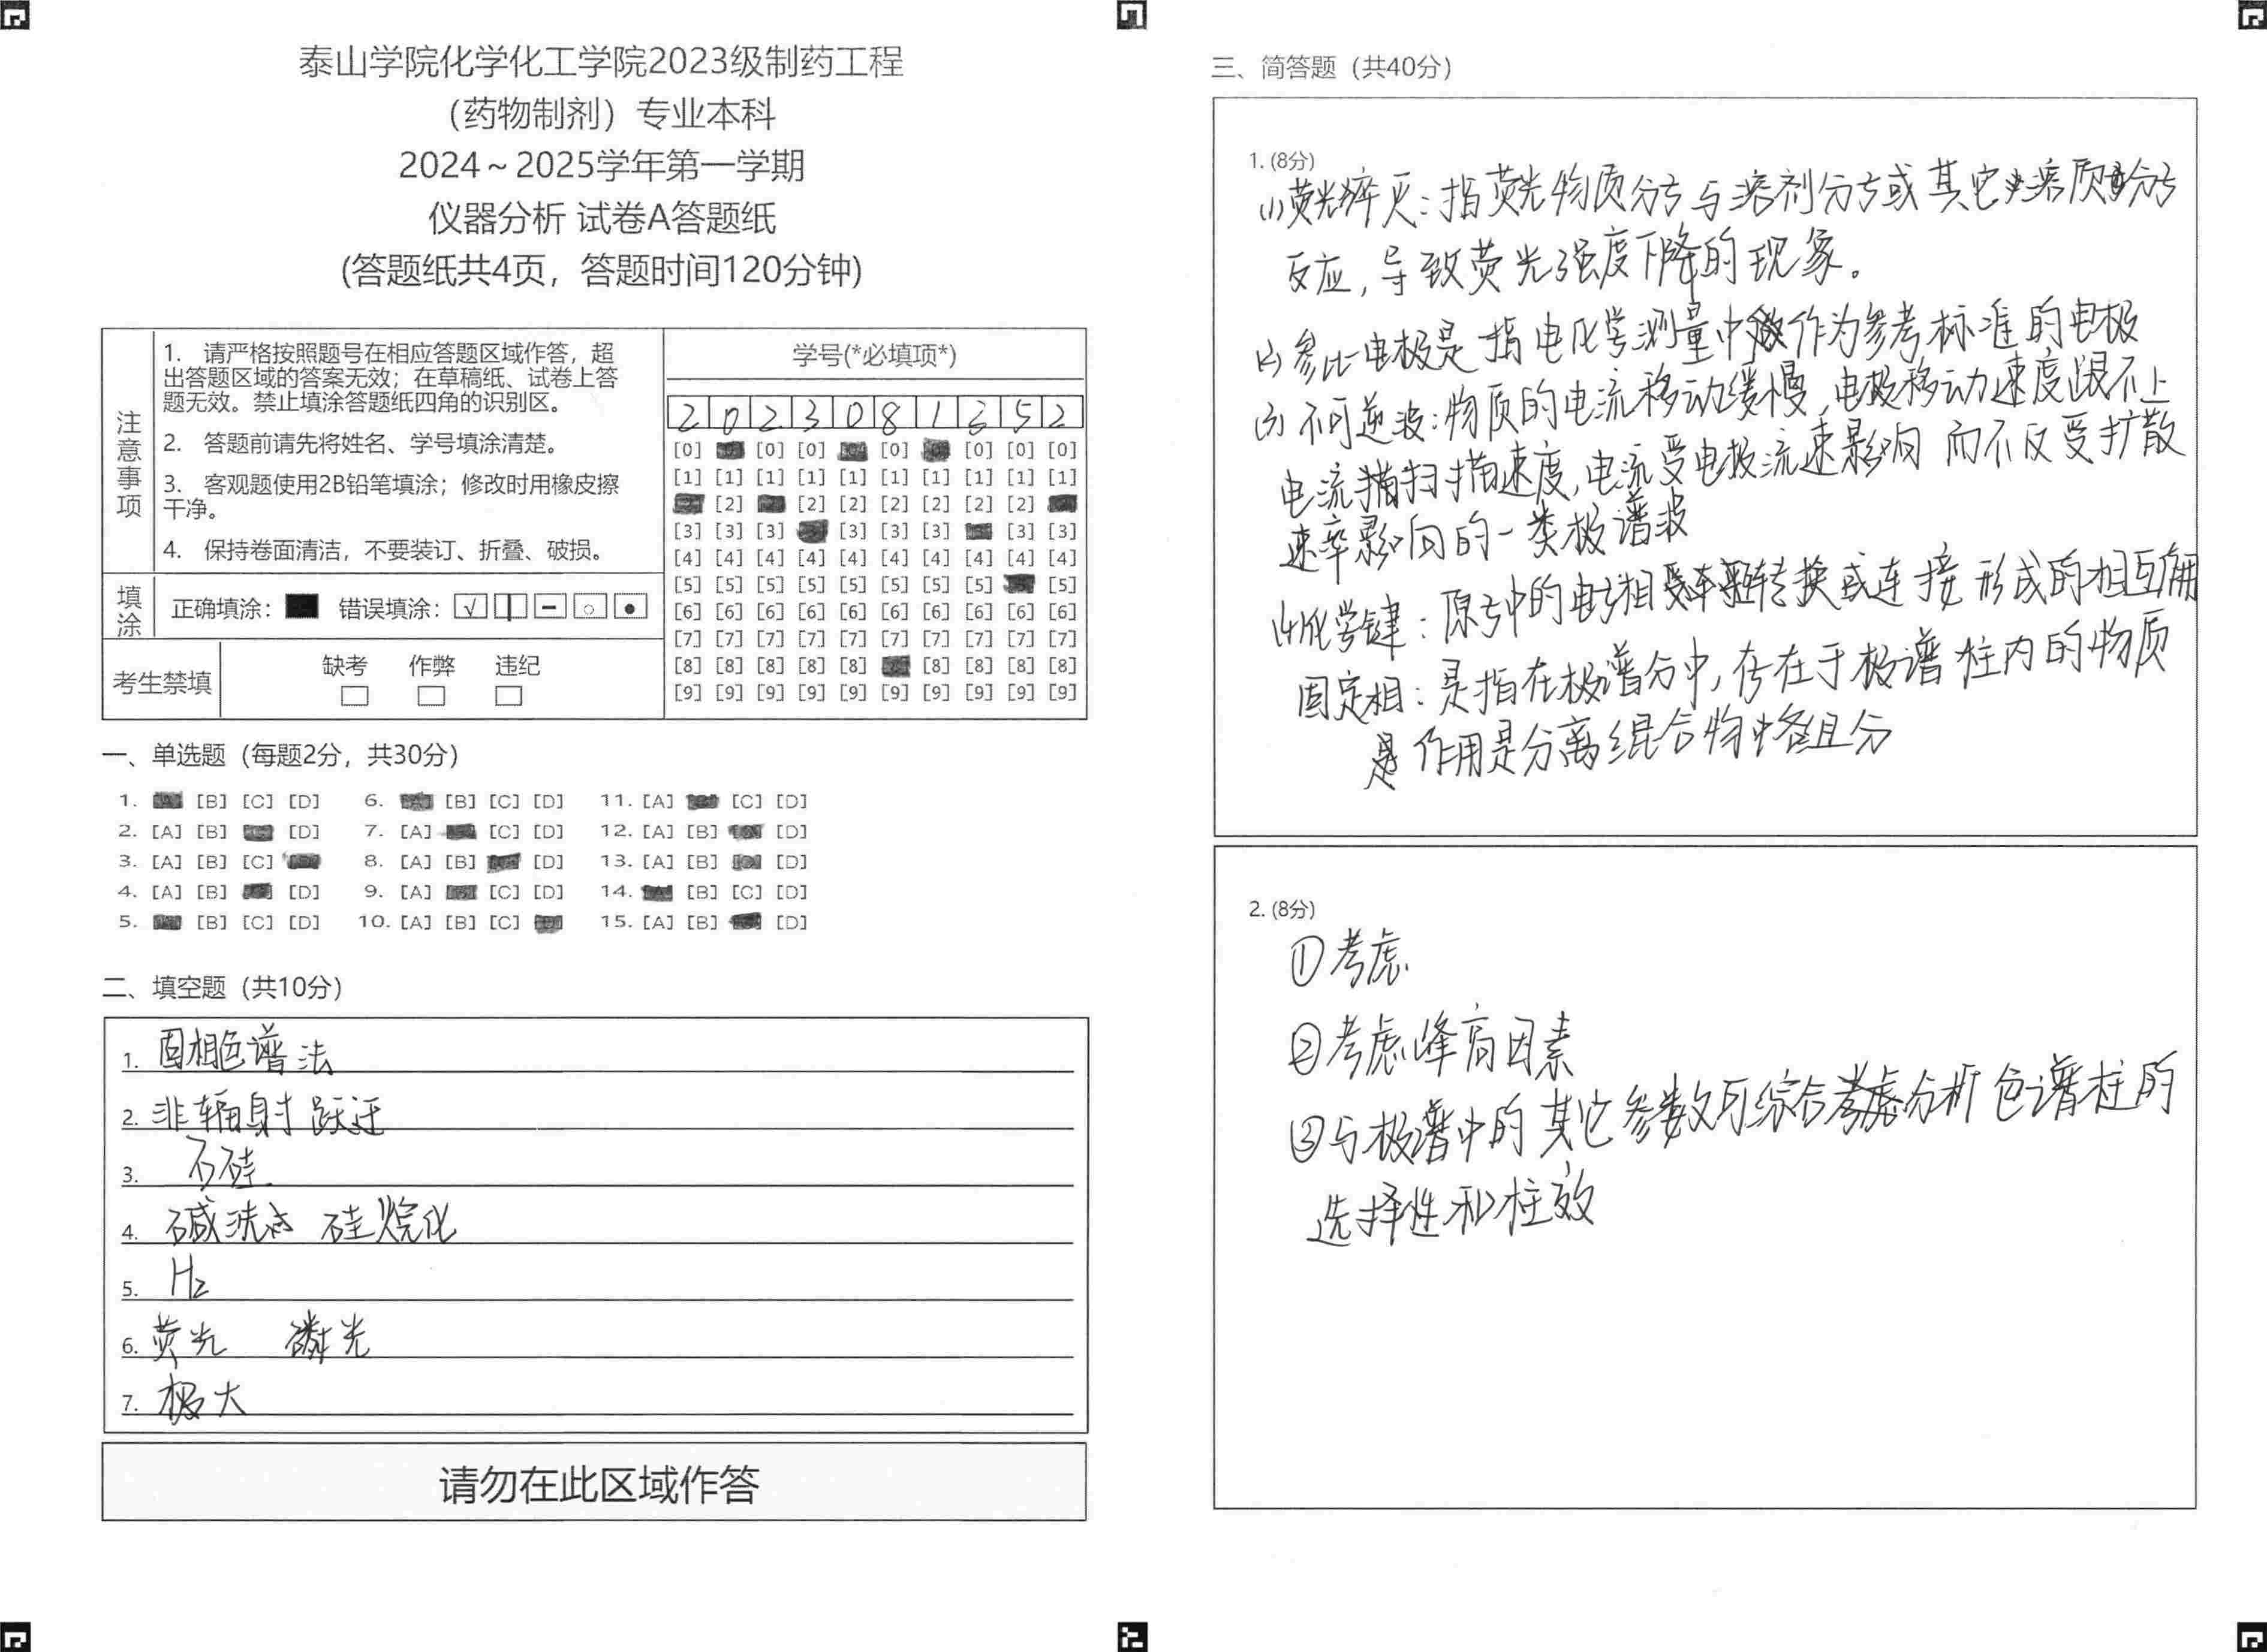 泰山学院化学化工学院2023级制药工程
（药物制剂）专业本科
2024～2025学年第一学期
仪器分析 试卷A答题纸
(答题纸共4页，答题时间120分钟)
注意事项
1. 请严格按照题号在相应答题区域作答，超
出答题区域的答案无效；在草稿纸、试卷上答
题无效。禁止填涂答题纸四角的识别区。
2. 答题前请先将姓名、学号填涂清楚。
3. 客观题使用2B铅笔填涂；修改时用橡皮擦
干净。
4. 保持卷面清洁，不要装订、折叠、破损。
填涂
正确填涂： 错误填涂：
考生禁填
缺考 作弊 违纪
学号(*必填项*)
2 0 2 3 0 8 1 3 5 2
[0] [0] [0] [0] [0] [0] [0]
[1] [1] [1] [1] [1] [1] [1] [1] [1] [1]
[2] [2] [2] [2] [2] [2] [2]
[3] [3] [3] [3] [3] [3] [3] [3]
[4] [4] [4] [4] [4] [4] [4] [4] [4] [4]
[5] [5] [5] [5] [5] [5] [5] [5] [5]
[6] [6] [6] [6] [6] [6] [6] [6] [6] [6]
[7] [7] [7] [7] [7] [7] [7] [7] [7] [7]
[8] [8] [8] [8] [8] [8] [8] [8] [8]
[9] [9] [9] [9] [9] [9] [9] [9] [9] [9]
一、单选题（每题2分，共30分）
1. [B] [C] [D] 6. [B] [C] [D] 11. [A] [C] [D]
2. [A] [B] [D] 7. [A] [C] [D] 12. [A] [B] [D]
3. [A] [B] [C] 8. [A] [B] [D] 13. [A] [B] [D]
4. [A] [B] [D] 9. [A] [C] [D] 14. [B] [C] [D]
5. [B] [C] [D] 10. [A] [B] [C] 15. [A] [B] [D]
二、填空题（共10分）
1. 固相色谱法
2. 非辐射跃迁
3. 石硅
4. 碱洗 硅烷化
5. H2
6. 荧光 磷光
7. 极大
请勿在此区域作答
三、简答题（共40分）
1. (8分)
(1)荧光猝灭：指荧光物质分子与溶剂分子或其它溶质分子
反应，导致荧光强度下降的现象。
(2)参比电极是指电化学测量中作为参考标准的电极
(3)不可逆波：物质的电流移动缓慢，电极移动速度跟不上
电流扫描速度，电流受电极流速影响而不仅受扩散
速率影响的一类极谱波
(4)化学键：原子中的电子相转换或连接形成的相互作用
固定相：是指在极谱分中，存在于极谱柱内的物质
作用是分离混合物中各组分
2. (8分)
①考虑
②考虑峰高因素
③与极谱中的其它参数可综合考虑分析色谱柱的
选择性和柱效